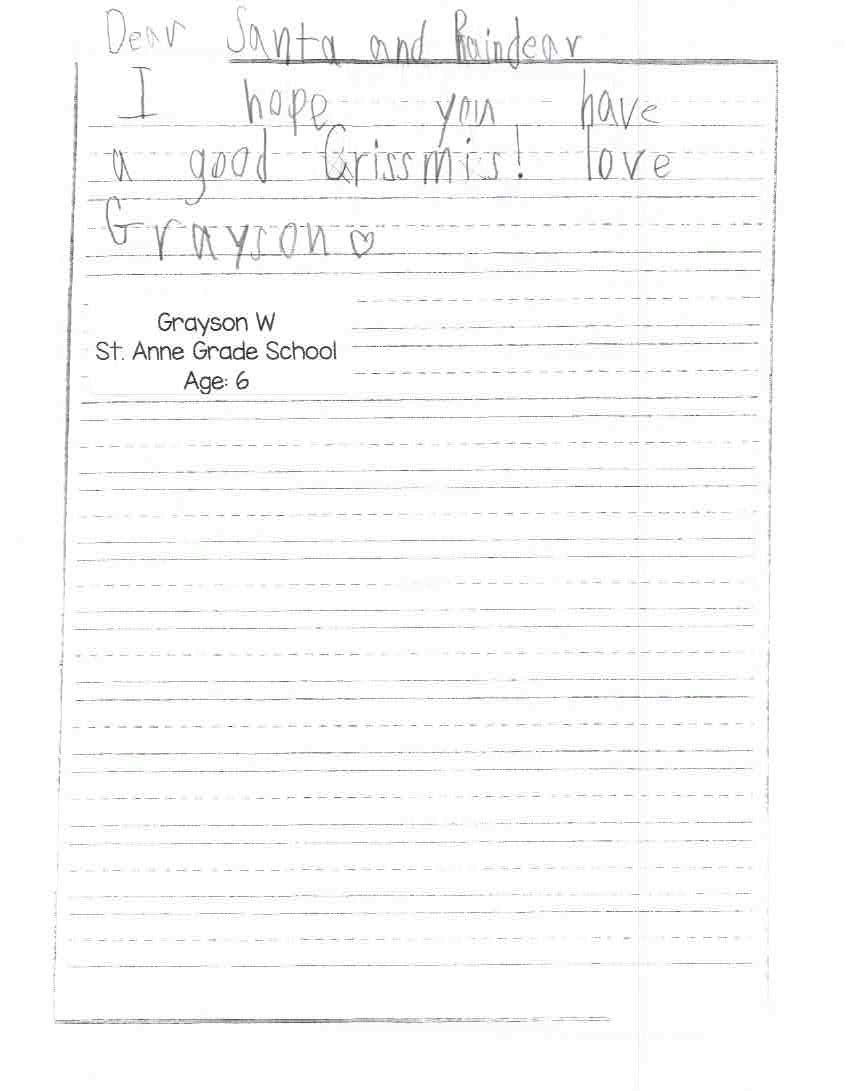 Dear Santa and Raindear
I hope you have
a good Grissmis! love
Grayson♡
Grayson W
St. Anne Grade School
Age: 6